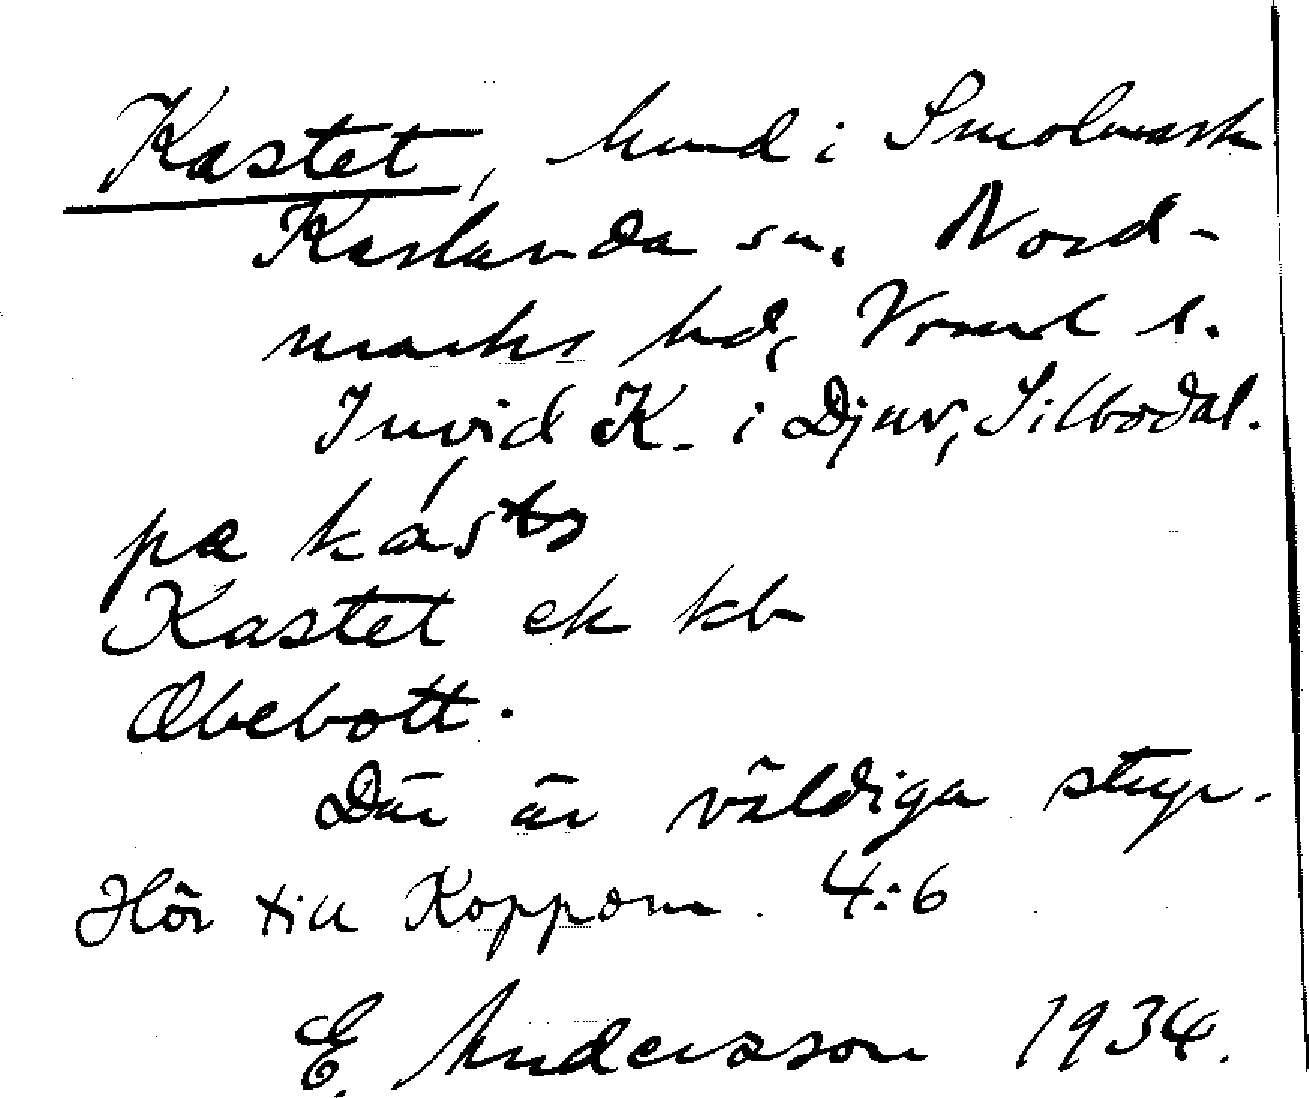 Kastet, hmd i Smolmark
Karlanda sn. Nord-
marks hd, Vrml l.
Invid K. i Djuv, Silbodal.
pa kást
Kastet ek kb
Obebott.
Där är väldiga stup.
Hör till Koppom. 4:6
E. Andersson 1934.